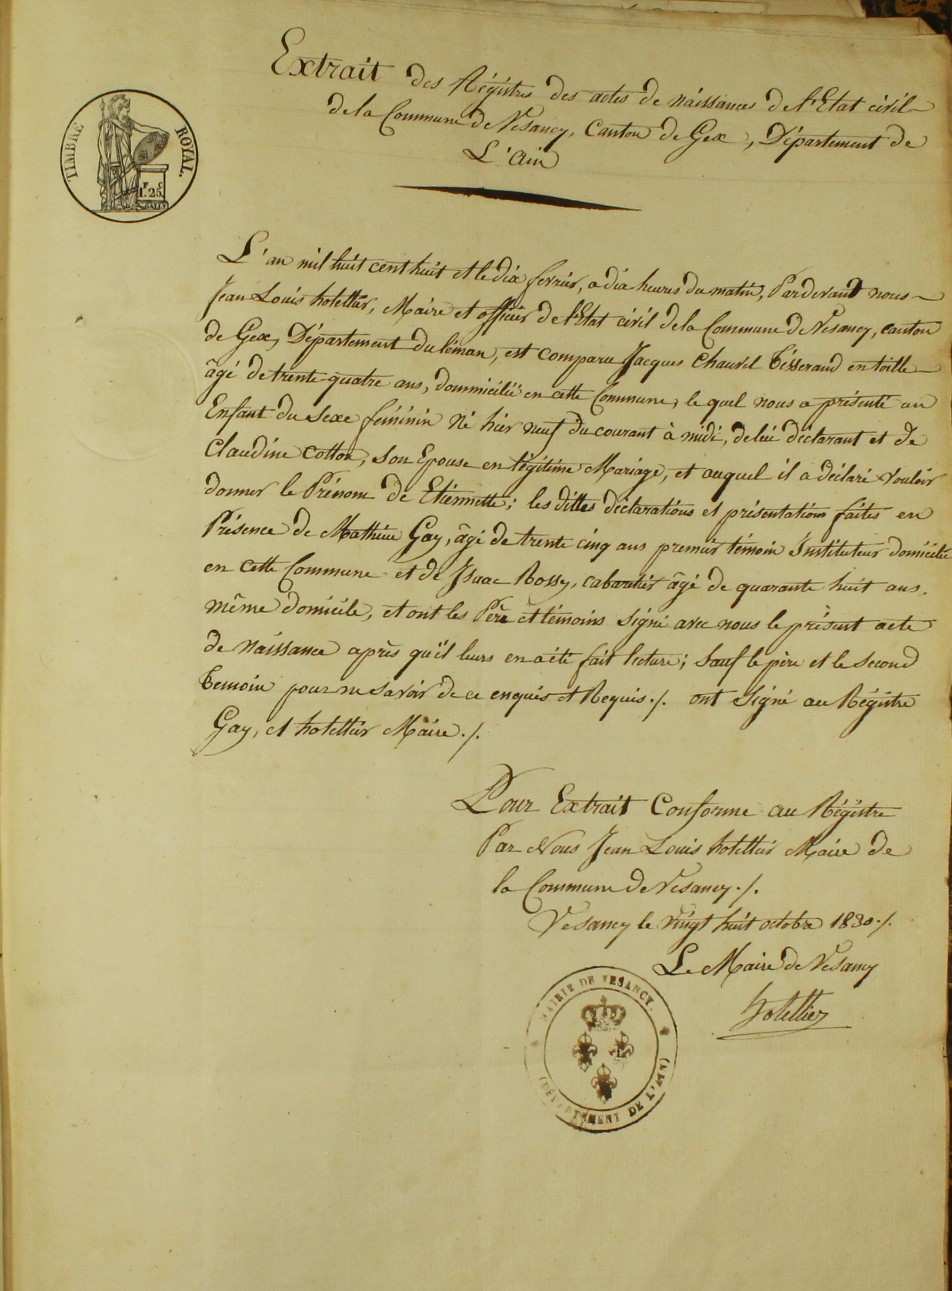 Extrait des Régistres des actes de naissances de l'Etat civil
de la Commune de Vesancy, Canton de Gex, Département de
L'Ain
TIMBRE ROYAL.
1.F 25.C
L'an mil huit cent huit et le dix fevrier, a dix heures du matin, Pardevant nous
Jean Louis hotellier, Maire et officier de l'Etat civil de la Commune de Vesancy, canton
de Gex, Département du léman, est comparu Jacques Chauvil Tisserand en toille
âgé de trente quatre ans, dommicilié en cette Commune, le quel nous a présenté un
Enfant du sexe féminin né hier neuf du courant à midi, de lui déclarant et de
Claudine Cotton, son Epouse en légitime Mariage, et auquel il a déclaré vouloir
donner le Prénom de Etiennette; les dittes déclarations et présentations faites en
Présence de Mathieu Gay, âgé de trente cinq ans premier témoin Instituteur domicilié
en cette Commune et de Isaac Rossy, cabaratier âgé de quarante huit ans.
même domicile, et ont les Père et témoins signé avec nous le présent acte
de naissance après qu'il leurs en a été fait lecture; Sauf le père et le second
Temoin pour ne savoir de ce enquis et Requis ./. ont signé au Régistre
Gay, et hotellier Maire ./.
Pour Extrait Conforme au Régistre
Par Nous Jean Louis hotellier Maire de
la Commune de Vesancy ./.
Vesancy le vingt huit octobre 1830 ./.
Le Maire de Vesancy
hotellier
MAIRIE DE VESANCY.
(DÉPARTEMENT DE L'AIN)